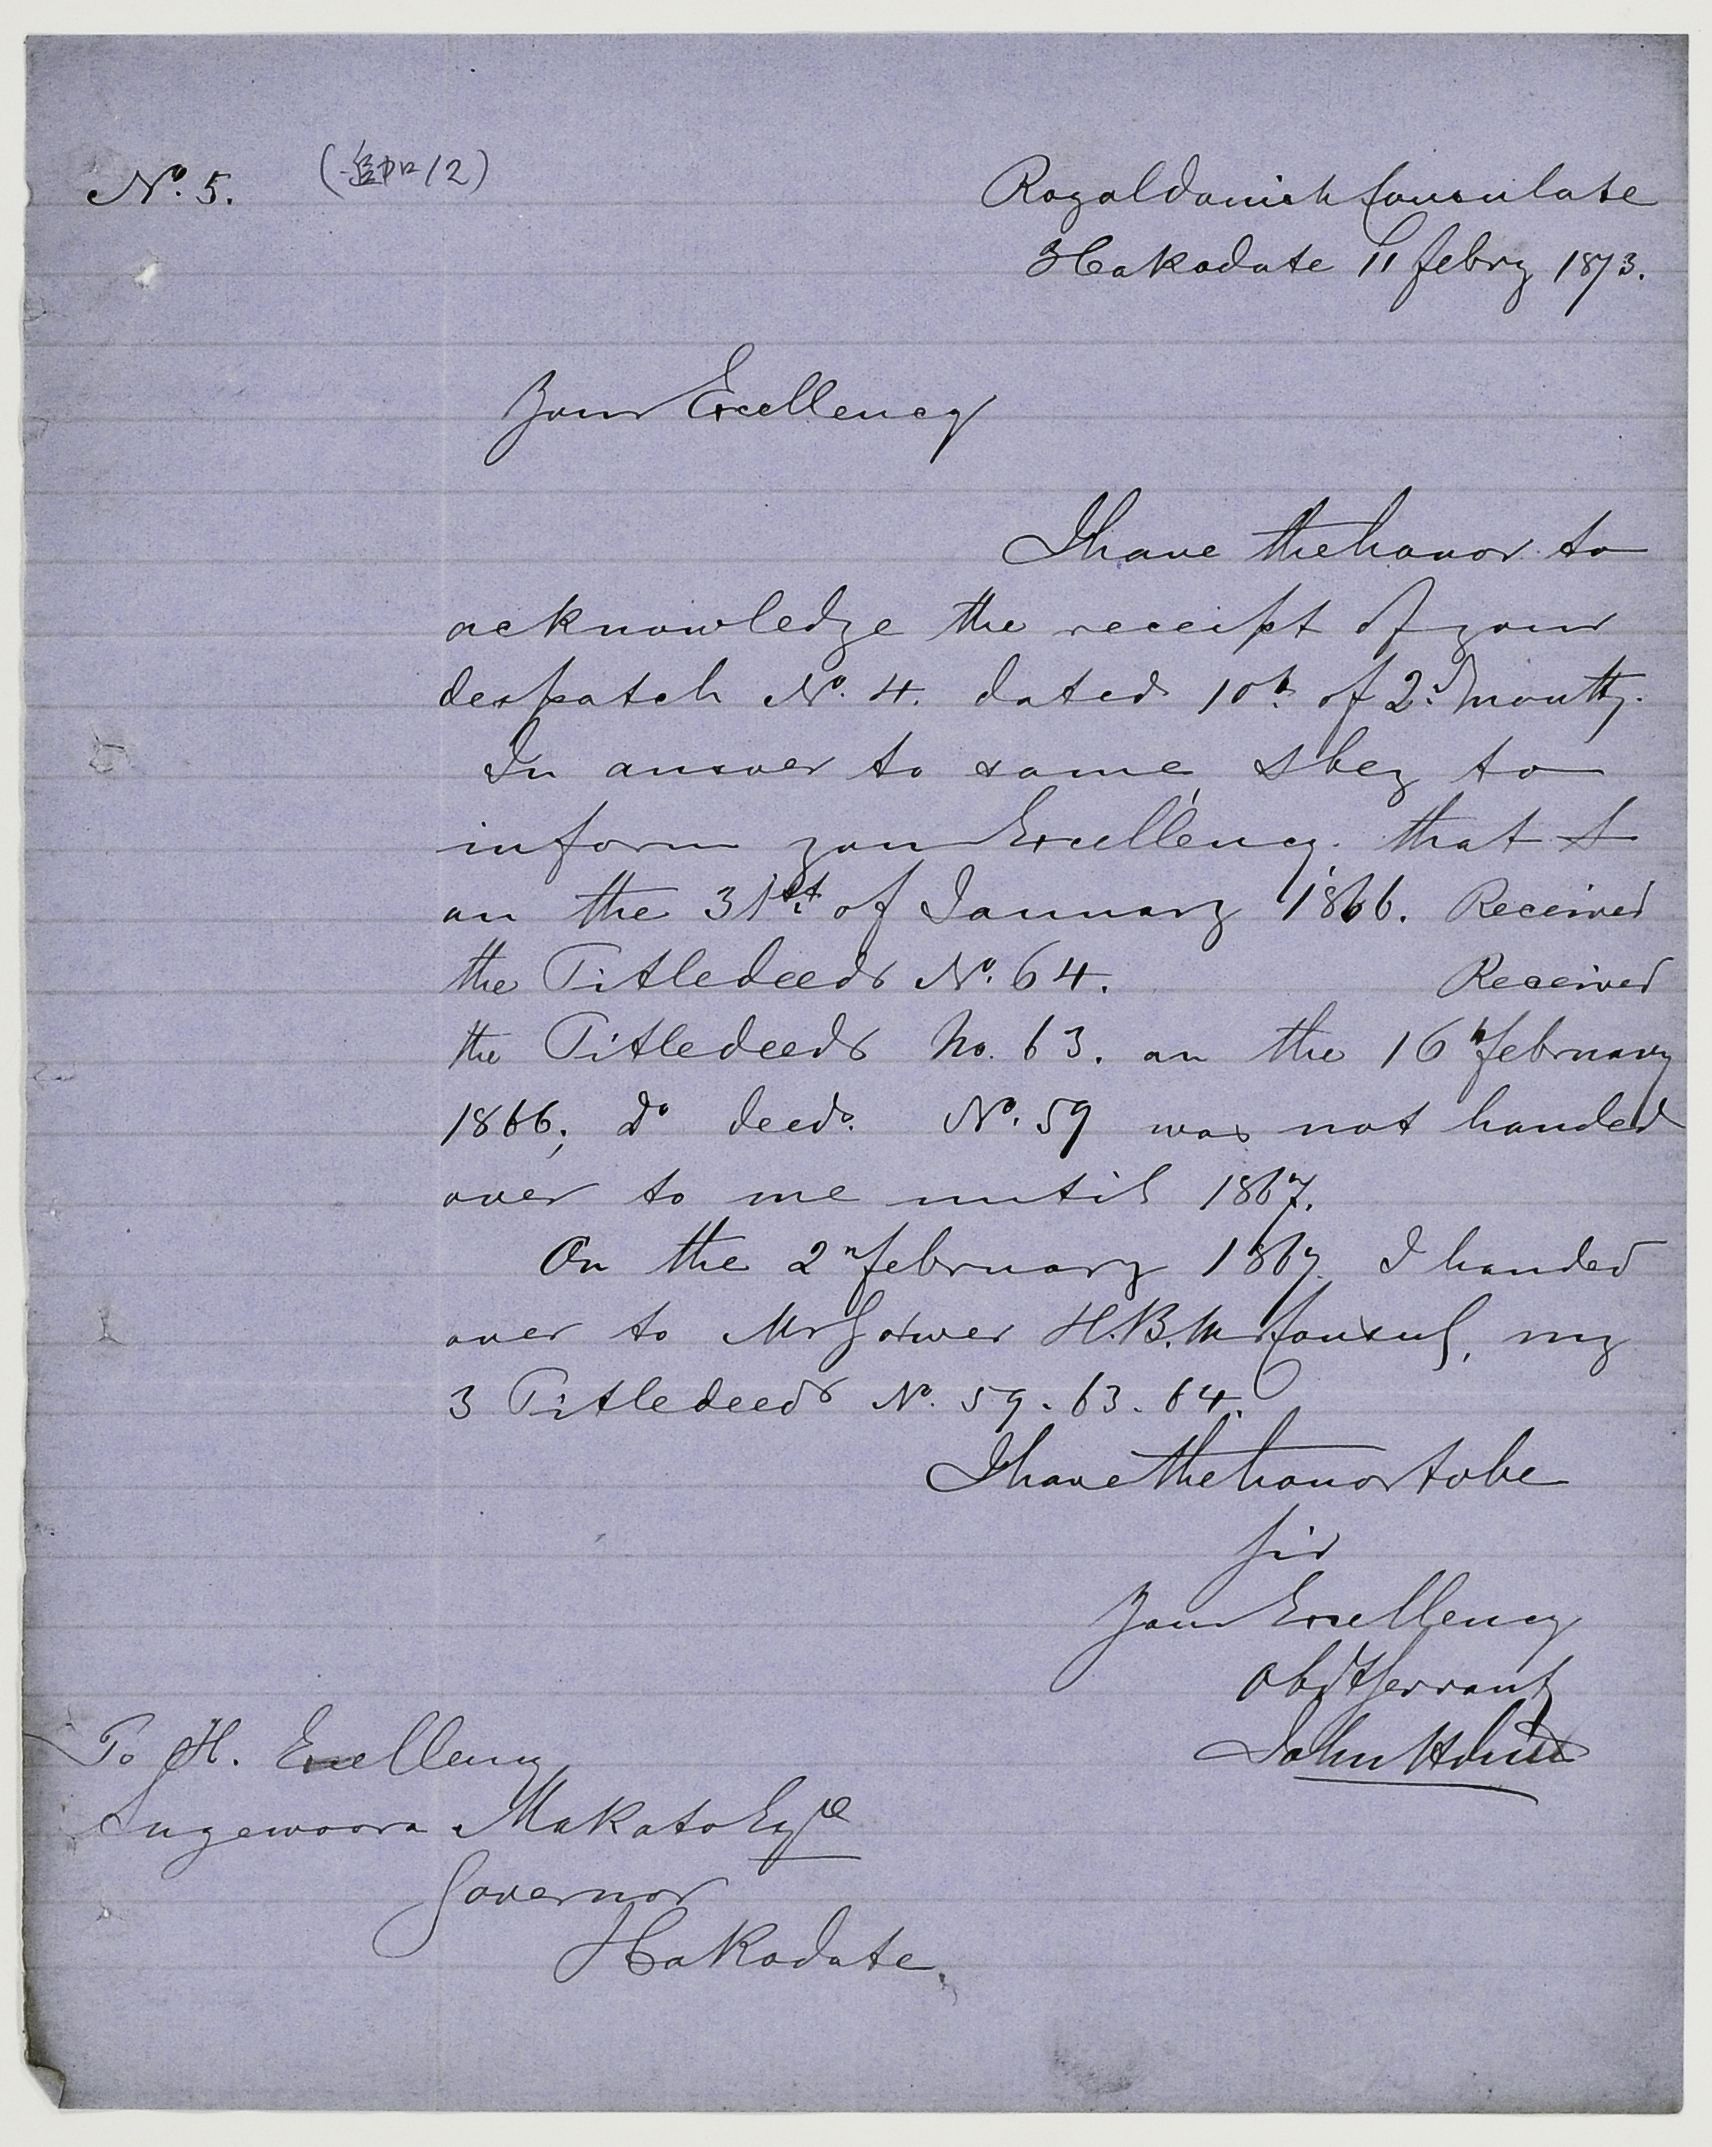 Nº. 5. (追加12)
Royal Danish Consulate
Hakodate 11 febry 1873.
Your Excellency
I have the honor to
acknowledge the receipt of your
despatch Nº. 4. dated 10th. of 2d. month.
In answer to same, I beg to
inform your Excellency. that I
on the 31st of January 1866. Received
the Titledeeds Nº. 64. Received
the Titledeeds No. 63. on the 16th february
1866; dº deeds. Nº. 59 was not handed
over to me until 1867.
On the 2n february 1867. I handed
over to Mr Gower H.B.M Consul, my
3 Titledeeds Nº. 59. 63. 64.
I have the honor to be
Sir
Your Excellency
Obdt Servant
John
To H. Excellency
Sugewoora Makato Esqre
Governor
Hakodate.